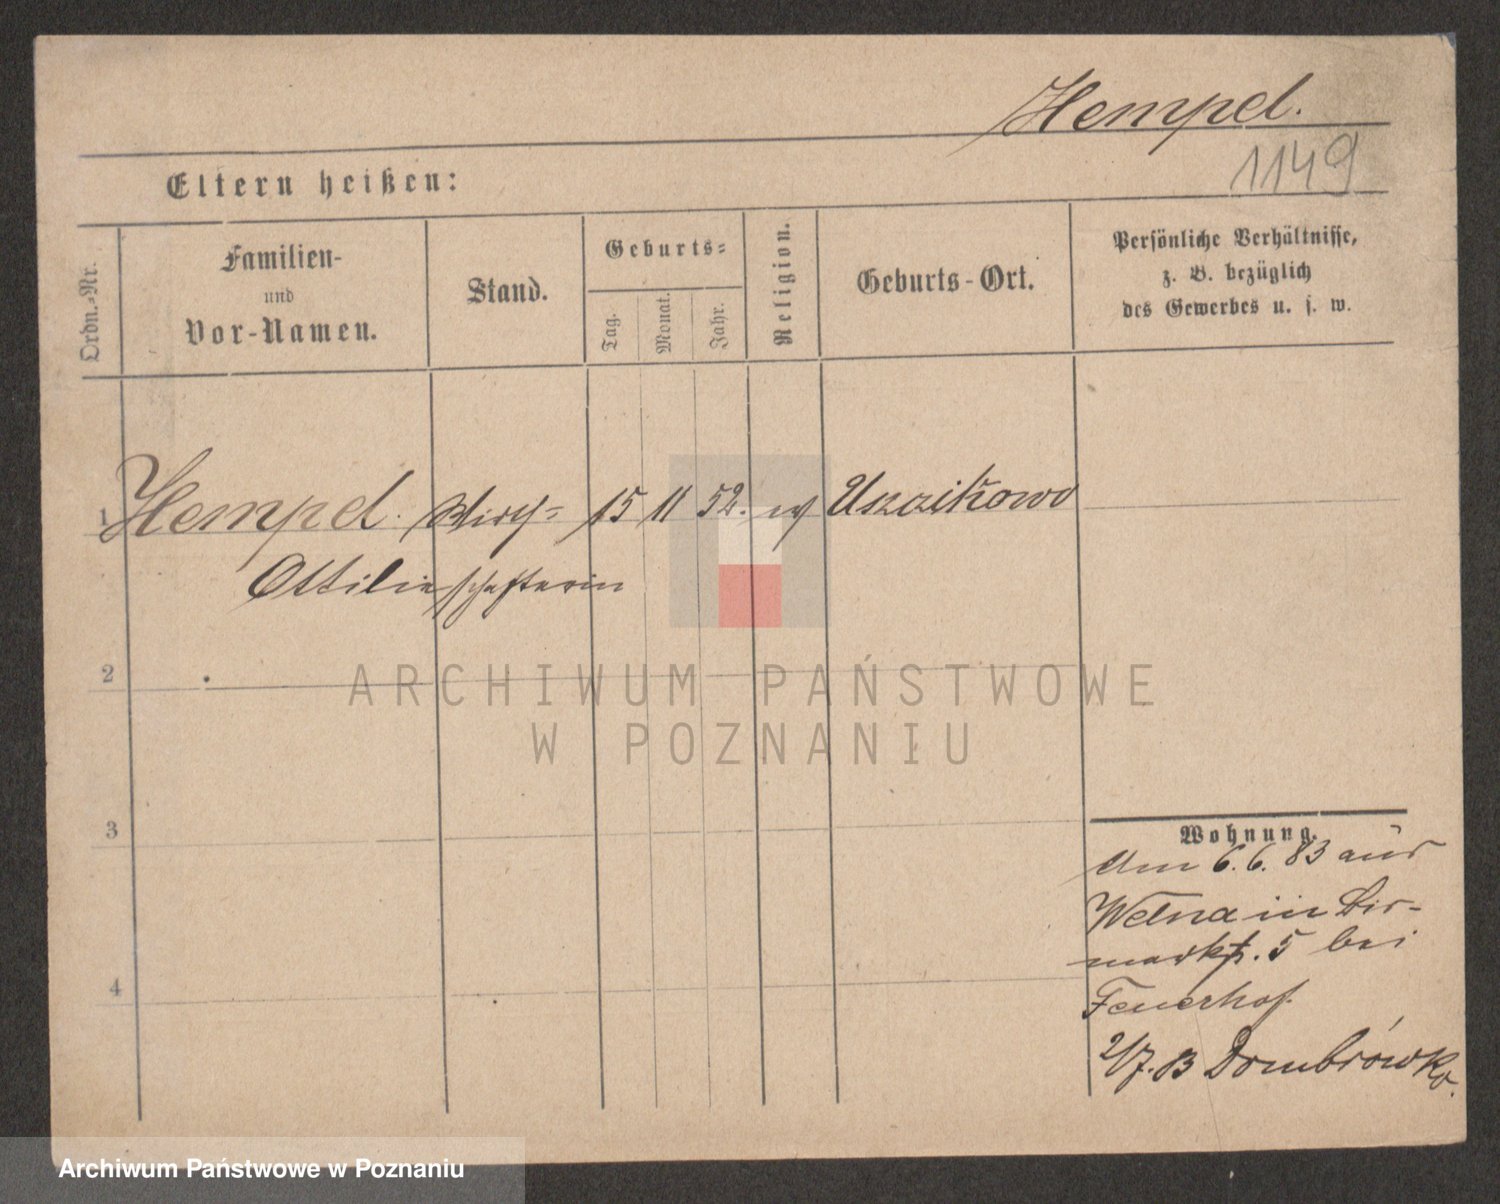 Hempel.
1149
Eltern heißen:
Ordn.-Nr.
Familien-
und
Vor-Namen.
Stand.
Geburts-
Tag.
Monat.
Jahr.
Religion.
Geburts-Ort.
Persönliche Verhältnisse,
z. B. bezüglich
des Gewerbes u. s. w.
1 Hempel. Wirth= 15 11 52. Uszcikowo
Ottilie schafterin
2
3
4
Wohnung.
Am 6.6.83 aus
Welna in
5 bei
Feuerhof.
2/7. 83 Dombrówka.
ARCHIWUM PAŃSTWOWE
W POZNANIU
Archiwum Państwowe w Poznaniu